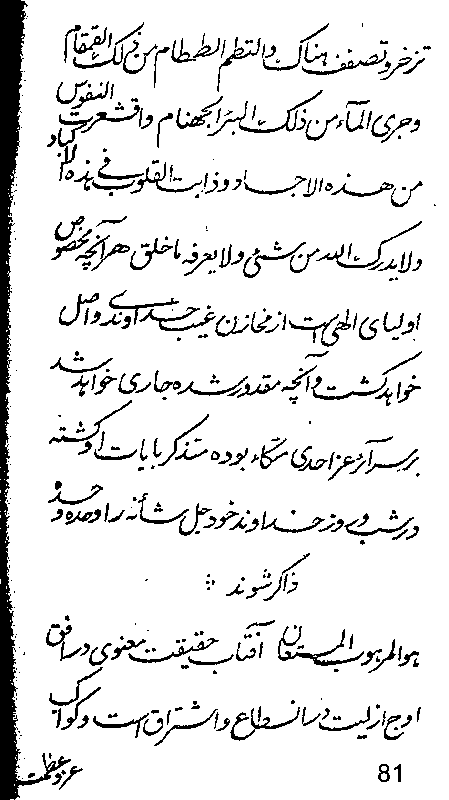 تزخر و تصفف هناك و التطم الطمطام من ذلك القمقام
و جرى المآء من ذلك البئر الجهنام و اقشعرت النفوس
من هذه الاجساد و ذابت القلوب فى هذه الاكباد
ولا يدرك الله من شئى ولا يعرفه ما خلق هر آنچه مخصوص
اولياى الهى است از مخازن غيب خداوند واصل
خواهد گشت و آنچه مقدور شده جارى خواهد شد
بر سرائر عز احدى متكاء بوده متذكر بايات او گشته
در شب و روز خداوند خود جل شأنه را وحده وحده
ذاكر شوند
هو المرهوب المستعان آفتاب حقيقت معنوى در افق
اوج ازليت در انسطاع و اشتراق است و كواكب
عز و عظمت
81